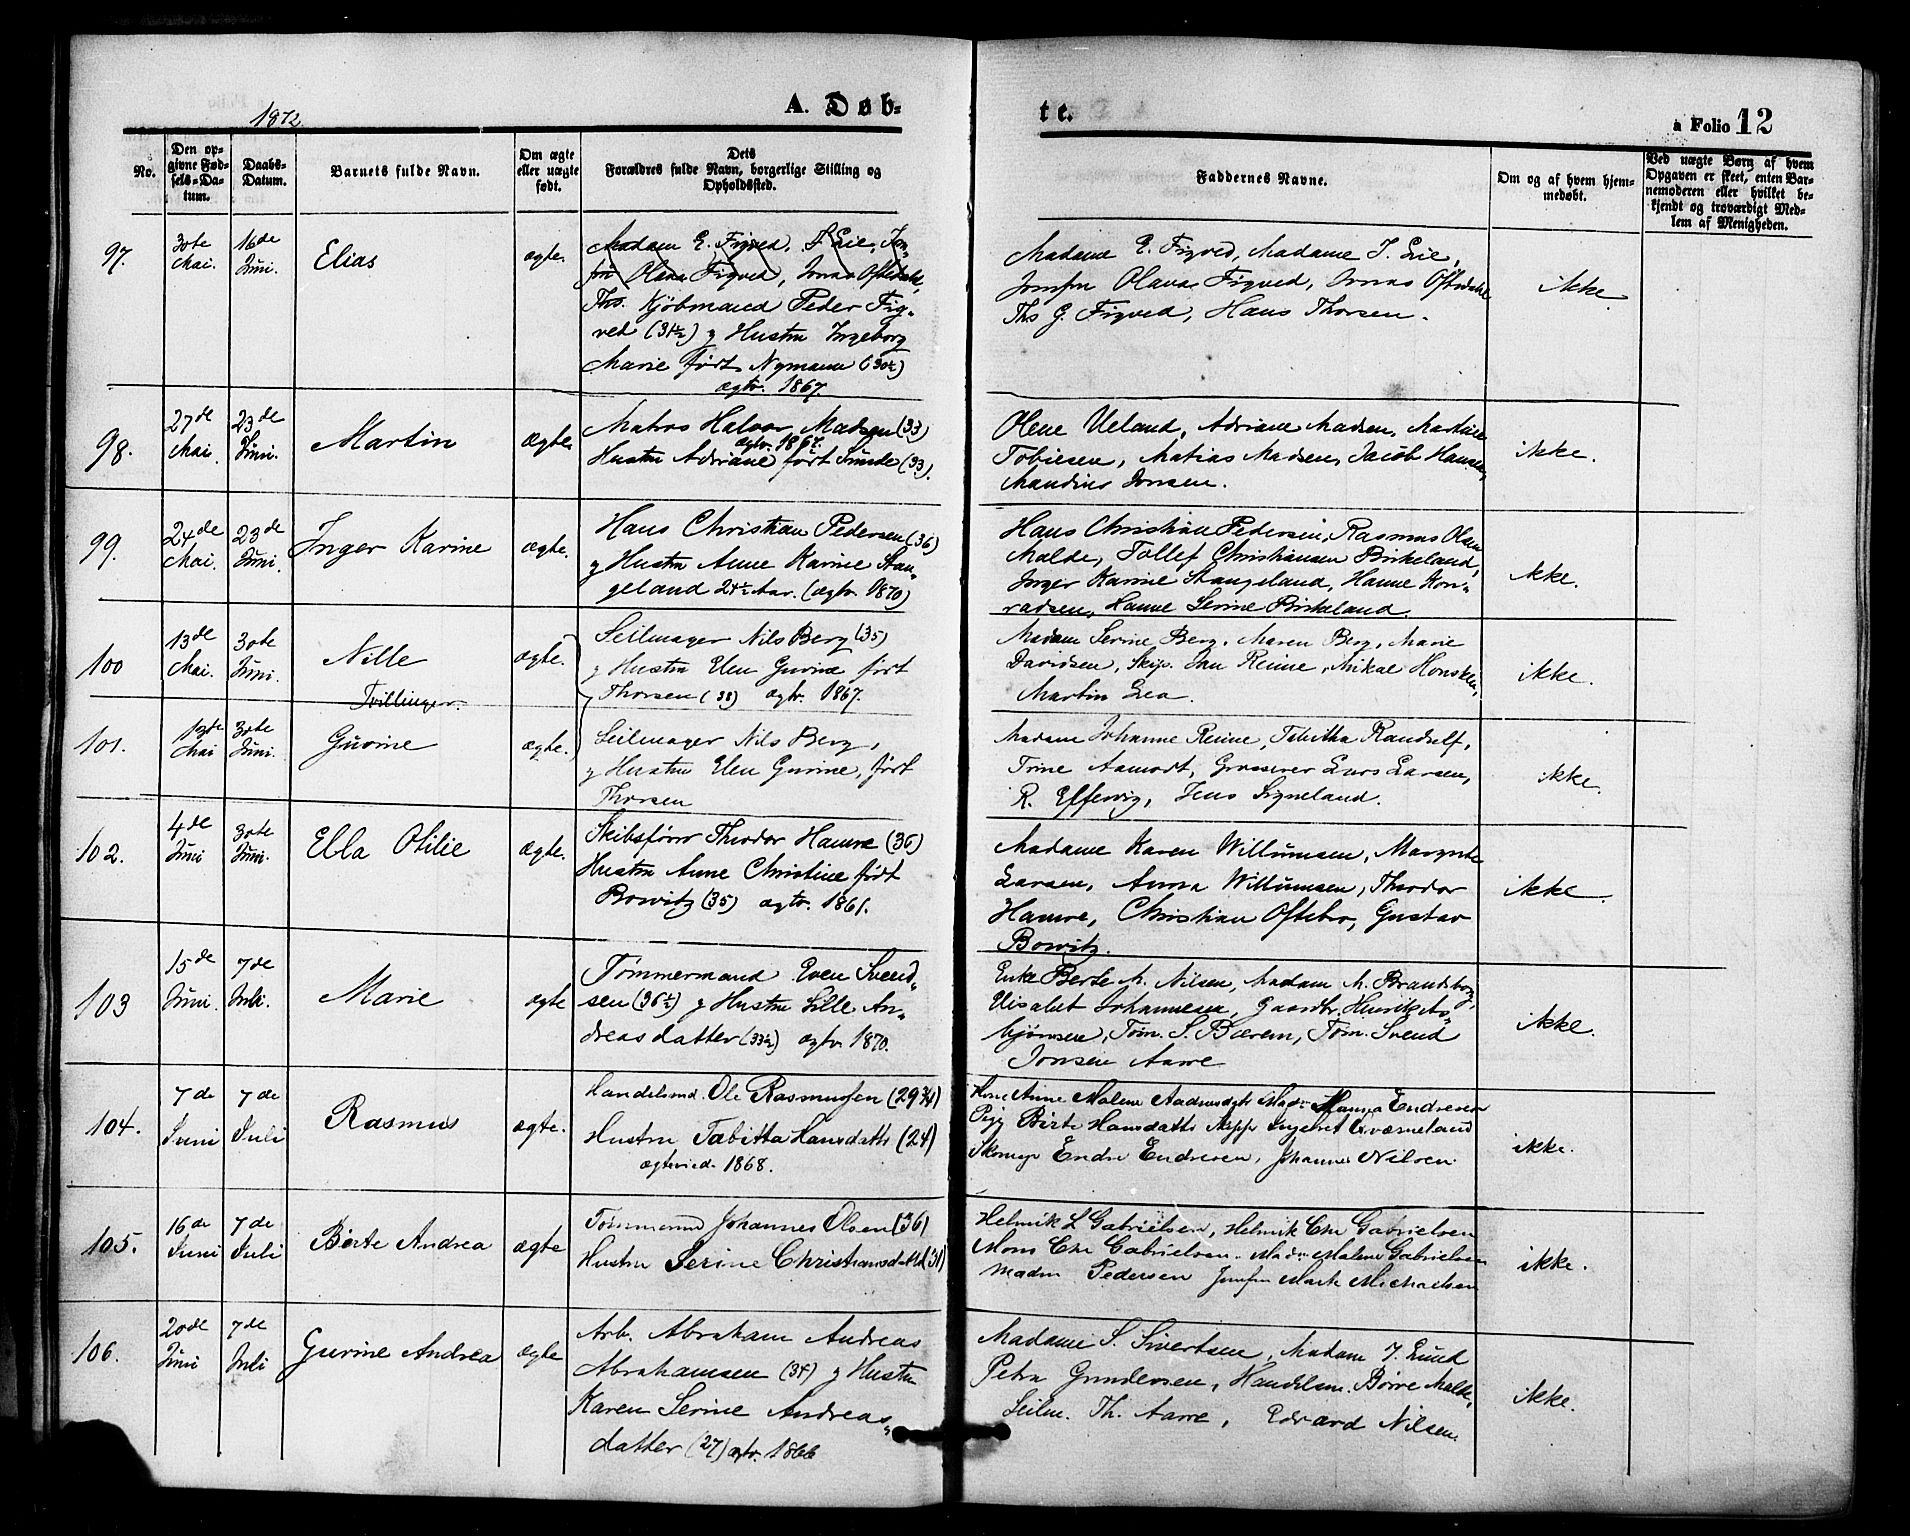 1872.
A. Døb-
te.
a Folio 12
No.
Den op-
givne Fød-
sels-Da-
tum.
Daabs-
Datum.
Barnets fulde Navn.
Om ægte
eller uægte
født.
Dets
Forældres fulde Navn, borgerlige Stilling og
Opholdssted.
Faddernes Navne.
Om og af hvem hjem-
medøbt.
Ved uægte Børn af hvem
Opgaven er skeet, enten Bar-
nemoderen eller hvilket be-
kjendt og troværdigt Med-
lem af Menigheden.
97.
30te
Mai.
16de
Juni.
Elias
ægte.
Madam E. Figved, T. Lie, Jom-
fru Olava Figved, Jonas Oftedahl,
Ths. Kjøbmand Peder Fig-
ved (31½) g Hustru Ingeborg
Marie født Nymann (30½)
ægtv. 1867.
Madame E. Figved, Madame T. Lie,
Jomfru Olava Figved, Jonas Oftedahl
Ths G. Figved, Hans Thorsen.
ikke
98.
27de
Mai.
23de
Juni.
Martin
Ægte
Matros Halvor Madsen (33)
ægtv. 1867.
Hustru Adriane født Sunde (33).
Olene Ueland, Adriane Madsen, Martine
Tobiesen, Matias Madsen, Jacob Hansen,
Mandius Jonsen.
ikke.
99.
24de
Mai.
23de
Juni.
Inger Karine
ægte.
Hans Christian Pedersen (36)
g Hustru Anne Karine Stan-
geland 24½ Aar. (ægtv. 1870)
Hans Christian Pedersen, Rasmus Olsen
Malde, Tollef Christiansen Birkeland,
Inger Karine Stangeland, Hanne Kon-
radsen, Hanne Serine Birkeland.
ikke.
100
13de
Mai.
30te
Juni.
Nille
ægte.
Seilmager Nils Berg (35)
g Hustru Elen Gurine født
Thorsen (38) ægtv. 1867.
Madam Serine Berg, Maren Berg, Marie
Davidsen, Skip. Jan Reime, Mikal Honsken,
Martin Lea.
ikke.
Tvillinger.
101.
13de
Mai
30te
Juni.
Gurine
ægte.
Seilmager Nils Berg,
g Hustru Elen Gurine, født
Thorsen
Madam Johanne Reime, Tabitha Randulf,
Trine Aamodt, Grosserer Lars Larsen,
R. Effersvig, Jens Sigveland.
ikke.
102.
4de
Juni
30te
Juni.
Ebba Otilie
Ægte.
Skibsfører Theodor Hamre (36)
Hustru Anne Christine født
Bowitz (35) ægtv. 1861.
Madame Karen Willumsen, Margrete
Larsen, Anna Willumsen, Theodor
Hamre, Christian Oftebro, Gustav
Bowitz.
ikke.
103
15de
Juni.
7de
Juli.
Marie
ægte
Tømmermand Even Svend-
sen (36½) g Hustru Sille An-
dreasdatter (33½) ægtv. 1870.
Enke Berte M. Nilsen, Madam M. Brandsberg,
Elisabet Johannesen, Gaardbr. Henrik As-
bjørnsen, Tøm. S. Bærem, Tøm. Svend
Jonsen Aarre
ikke.
104.
7de
Juni
7de
Juli
Rasmus
ægte.
Handelsmd. Ole Rasmussen (29¾)
Hustru Tabitta Hansdattr (24)
ægteviede 1868.
Kone Anne Malene Aadnesdatr Madm Hanna Endresen
Pige Birte Hansdattr Ingeret Kverneland
Skomgr Endre Endresen, Johannes Nilsen
ikke.
105.
16de
Juni
7de
Juli
Børte Andrea
ægte
Tømmermd Johannes Olsen (36)
Hustru Serine Christiansdattr (31)
Helmik L Gabrielsen, Helmik Chr Gabrielsen
Mons Chr Gabrielsen. Madm Malene Gabrielsen
Madm Pedersen Jomfru Marte Michaelsen
ikke.
106.
20de
Juni
7de
Juli
Gurine Andrea
ægte
Arb. Abraham Andreas
Abrahamsen (34) g Hustru
Karen Serine Andreas-
datter (27) ægtv. 1866
Madame S. Sivertsen, Madam J. Lund
Petra Gundersen, Handelsm. Børre Malde,
Seilm. Th. Aarre, Edvard Nilsen
ikke.